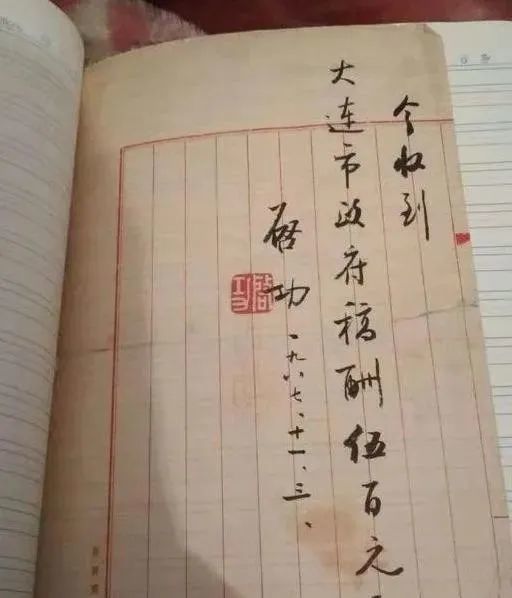 今收到
大連市政府稿酬伍百元
启功
一九八七、十一、三、